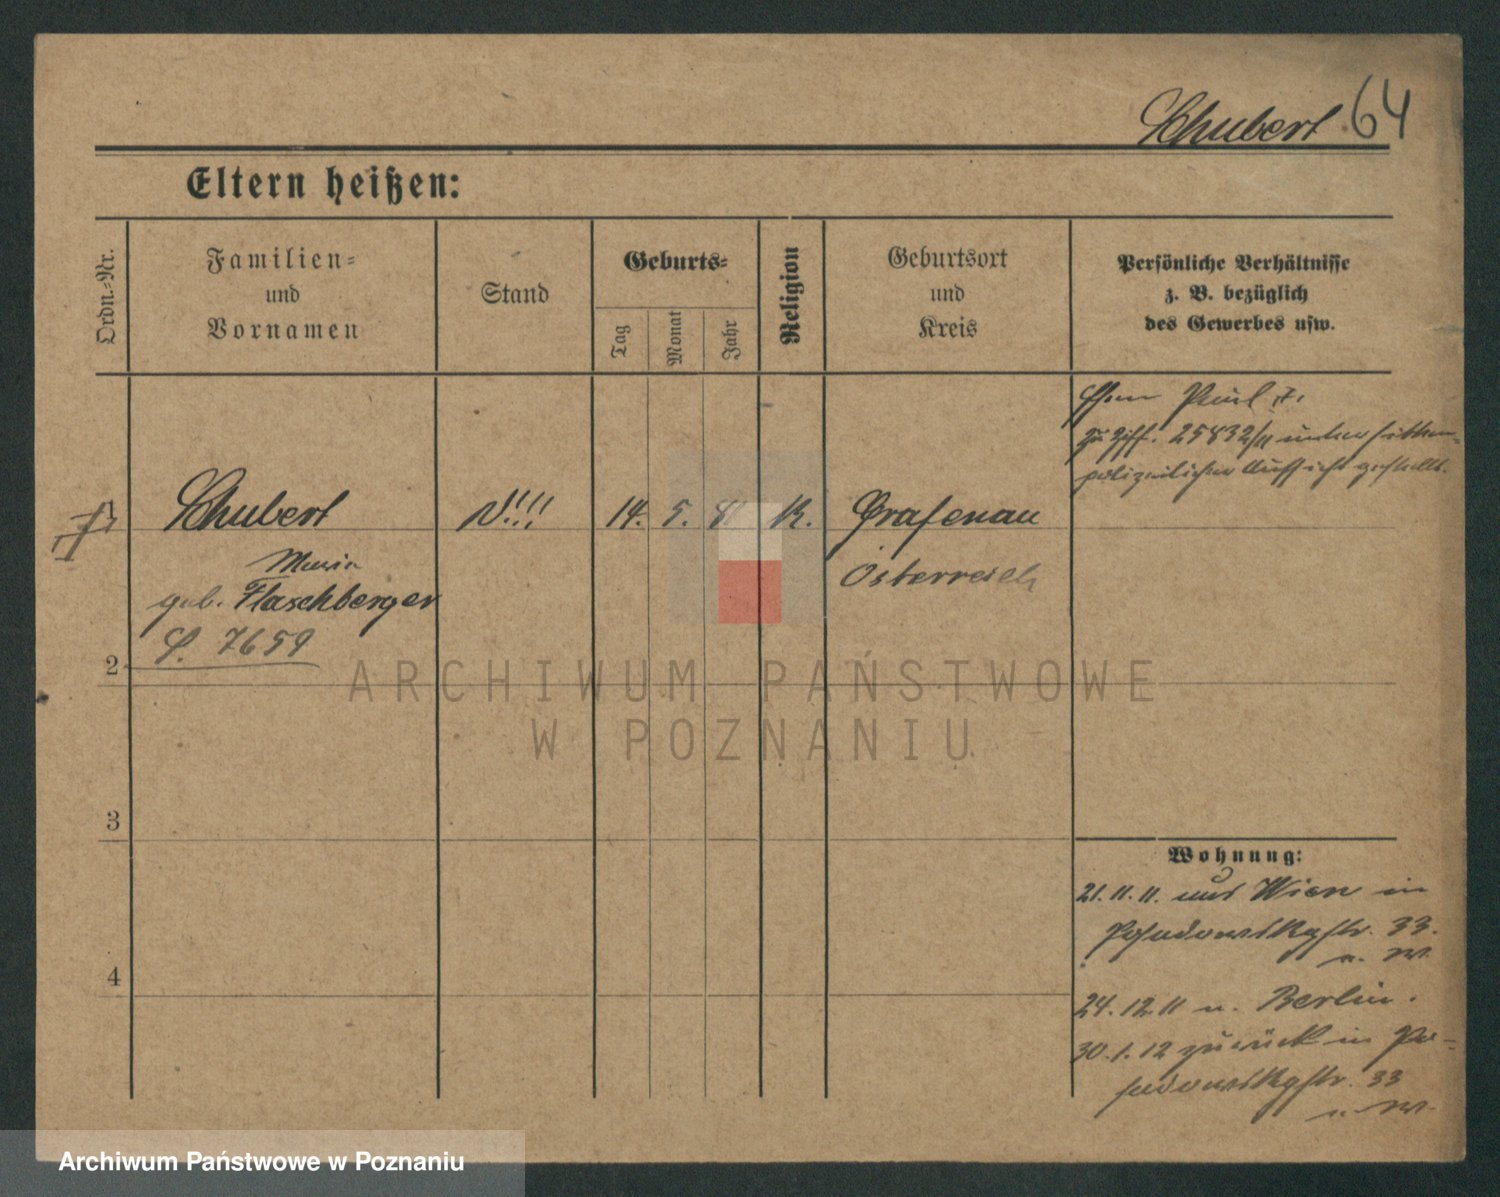 Schubert 64
Eltern heißen:
Ordn.-Nr.
Familien-
und
Vornamen
Stand
Geburts-
Tag
Monat
Jahr
Religion
Geburtsort
und
Kreis
Persönliche Verhältnisse
z. B. bezüglich
des Gewerbes usw.
Paul
zu Ziff. 25832/11 unter sitten-
polizeilicher Aufsicht gestellt.
1
Schubert
14. 5. 81
K.
Grafenau
Österreich
Maria
geb. Flaschberger
7659
2
3
4
Wohnung:
21.11.11. aus Wien in
Posadowskystr. 33.
24.12.11 n. Berlin.
30.1.12 zurück in Po-
sadowskystr. 33
ARCHIWUM PAŃSTWOWE
W POZNANIU
Archiwum Państwowe w Poznaniu